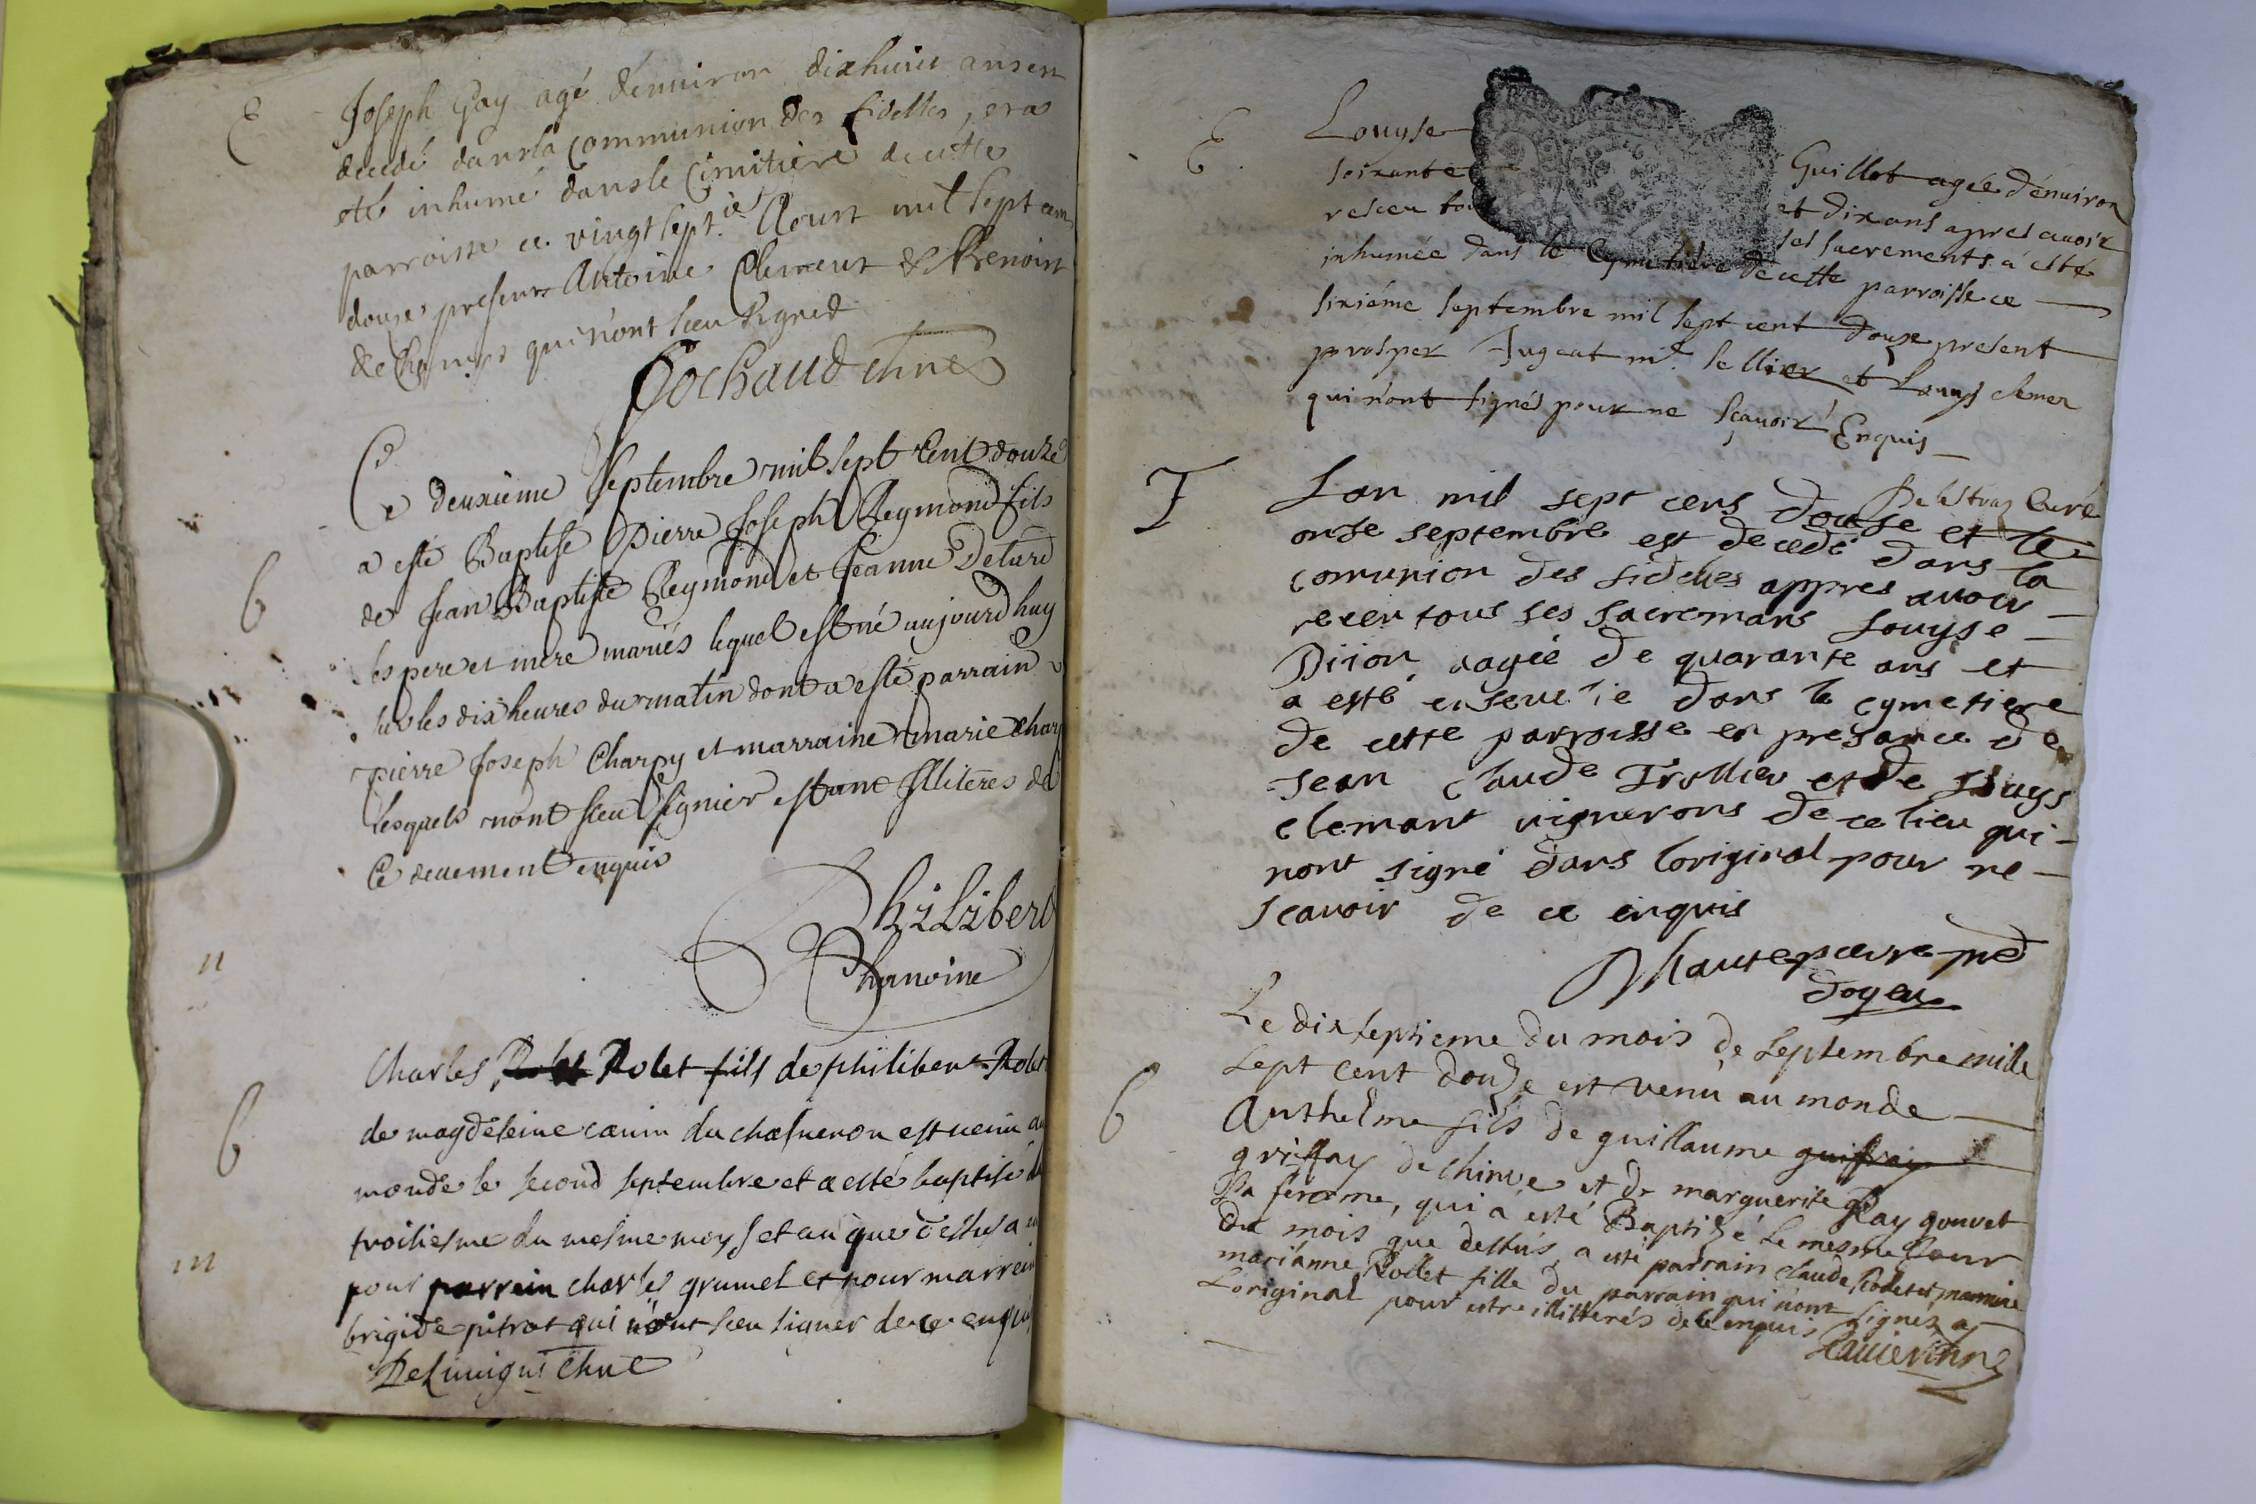 E
Joseph Gay agé dénuiron dixhuict ans est
decedé dans la communion des fidelles, et a
esté inhumé dans le Cimitiere de cette
parroisse ce vingt sept.ie Aoust mil sept cent
douze presents Antoine Clement & Benoist
qui n'ont sceu signer
Ce deuxieme Septembre mil sept Cent douze
a esté Baptisé Pierre Joseph Reymond fils
de Jean Baptiste Reymond et Jeanne
ses pere et mere mariés lequel est né aujourdhuy
sur les dix heures du matin dont a esté parrain
pierre Joseph Charpy et marraine marie Char
lesquels n'ont sceu signier estant Illiteres de
Ce deuement enquis
6
Philibert
Chanoine
n
Charles Rolet fils de philibert Rolet
de magdeleine du est venu au
monde le second septembre et a esté baptisé le
troisiesme du mesme moys et an que dessus a eu
pour parrein charles grumel et pour marreine
brigide pitrat qui n'ont sceu signer de ce enquis
6
m
E.
Louyse Guillot agée dénuiron
soixante et dix ans apres auoir
resceu tous ses sacrements à esté
inhumée dans le Cymetiere de cette parroisse ce
sixiéme septembre mil sept cent douze present
prosper Jugeat m.e sellier et Louys clemen
qui n'ont signés pour ne sçauoir Enquis
Curé
T
Lan mil sept cens douse et le
onse septembre est decedé dans la
comunion des fideles appres auoir
receu tous ses sacremans Louyse
Dijon aagée de quarante ans et
a esté enseuelie dans le cymetiere
de cette parroisse en presance de
Jean Claude Trollier et de Louys
clemant vignerons de ce lieu qui
nont signé dans l'original pour ne
scauoir de ce enquis
doyen
Le dix septieme du mois de septembre mille
sept cent douze est venu au monde
Anthelme fils de guillaume guifray
griffay de chinve et de marguerite Ray gonvet
sa femme, qui a esté Baptizé le mesme Jour
du mois que dessus a esté parrain claude Rodet et marreine
marianne Rodet fille du parrain qui n'ont signés a
L'original pour estre illitterés de ce enquis
6